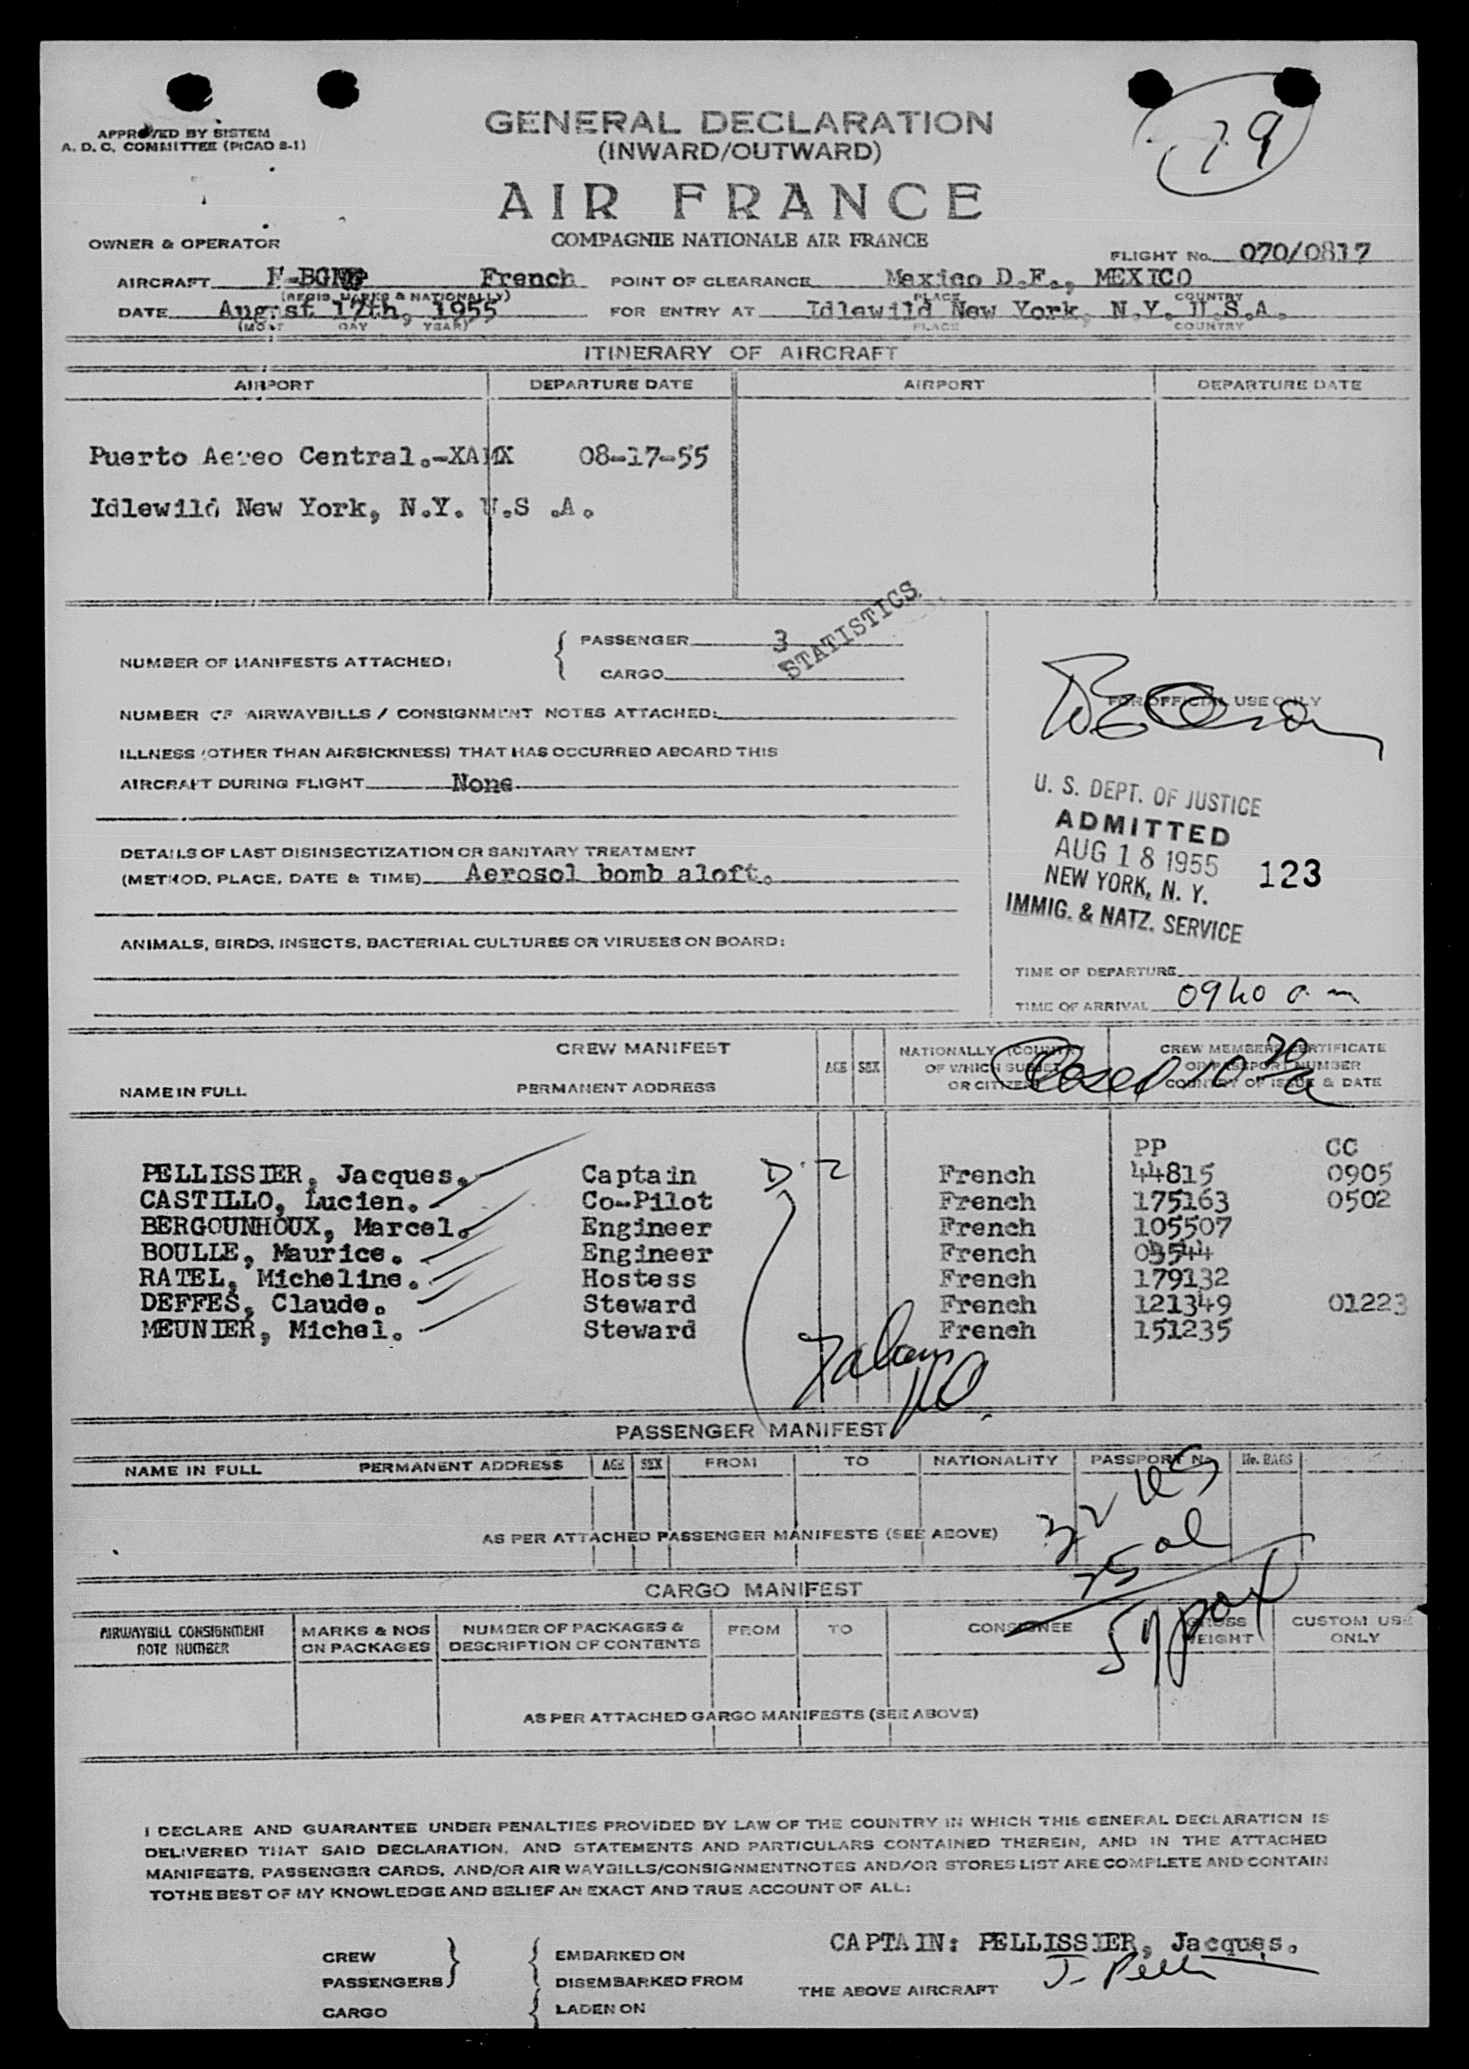 APPROVED BY SISTEM
A. D. C. COMMITTEE (PICAO S-1)
GENERAL DECLARATION
(INWARD/OUTWARD)
79
AIR FRANCE
COMPAGNIE NATIONALE AIR FRANCE
OWNER & OPERATOR
FLIGHT No. 070/0817
AIRCRAFT French POINT OF CLEARANCE Mexico D.F., MEXICO
(REGIS. MARKS & NATIONALLY) PLACE COUNTRY
DATE August 17th, 1955 FOR ENTRY AT Idlewild New York, N.Y. U.S.A.
DAY YEAR) PLACE COUNTRY
ITINERARY OF AIRCRAFT
AIRPORT DEPARTURE DATE AIRPORT DEPARTURE DATE
Puerto Aereo Central.-XAMX 08-17-55
Idlewild New York, N.Y. U.S .A.
NUMBER OF MANIFESTS ATTACHED: PASSENGER 3
CARGO
STATISTICS
NUMBER OF AIRWAYBILLS / CONSIGNMENT NOTES ATTACHED:
FOR OFFICIAL USE ONLY
ILLNESS (OTHER THAN AIRSICKNESS) THAT HAS OCCURRED ABOARD THIS
AIRCRAFT DURING FLIGHT None
U. S. DEPT. OF JUSTICE
ADMITTED
AUG 18 1955 123
NEW YORK, N. Y.
IMMIG. & NATZ. SERVICE
DETAILS OF LAST DISINSECTIZATION OR SANITARY TREATMENT
(METHOD, PLACE, DATE & TIME) Aerosol bomb aloft.
ANIMALS, BIRDS, INSECTS, BACTERIAL CULTURES OR VIRUSES ON BOARD:
TIME OF DEPARTURE
TIME OF ARRIVAL 0940 a m
CREW MANIFEST
NAME IN FULL PERMANENT ADDRESS AGE SEX NATIONALLY (COUNTRY OF WHICH SUBJECT OR CITIZEN) CREW MEMBERS CERTIFICATE OR PASSPORT NUMBER COUNTRY OF ISSUE & DATE
Closed 10 30 a
PP CC
PELLISSIER, Jacques. Captain French 44815 0905
CASTILLO, Lucien. Co-Pilot French 175163 0502
BERGOUNHOUX, Marcel. Engineer French 105507
BOULLE, Maurice. Engineer French
RATEL, Micheline. Hostess French 179132
DEFFES, Claude. Steward French 121349 01223
MEUNIER, Michel. Steward French 151235
PASSENGER MANIFEST
NAME IN FULL PERMANENT ADDRESS AGE SEX FROM TO NATIONALITY PASSPORT No. No. BAGS
AS PER ATTACHED PASSENGER MANIFESTS (SEE ABOVE)
32 us
25 al
57 pax
CARGO MANIFEST
AIRWAYBILL CONSIGNMENT NOTE NUMBER MARKS & NOS ON PACKAGES NUMBER OF PACKAGES & DESCRIPTION OF CONTENTS FROM TO CONSIGNEE GROSS WEIGHT CUSTOM USE ONLY
AS PER ATTACHED CARGO MANIFESTS (SEE ABOVE)
I DECLARE AND GUARANTEE UNDER PENALTIES PROVIDED BY LAW OF THE COUNTRY IN WHICH THIS GENERAL DECLARATION IS
DELIVERED THAT SAID DECLARATION, AND STATEMENTS AND PARTICULARS CONTAINED THEREIN, AND IN THE ATTACHED
MANIFESTS, PASSENGER CARDS, AND/OR AIR WAYBILLS/CONSIGNMENTNOTES AND/OR STORES LIST ARE COMPLETE AND CONTAIN
TOTHE BEST OF MY KNOWLEDGE AND BELIEF AN EXACT AND TRUE ACCOUNT OF ALL:
CAPTAIN: PELLISSIER, Jacques.
CREW EMBARKED ON
PASSENGERS DISEMBARKED FROM THE ABOVE AIRCRAFT
CARGO LADEN ON